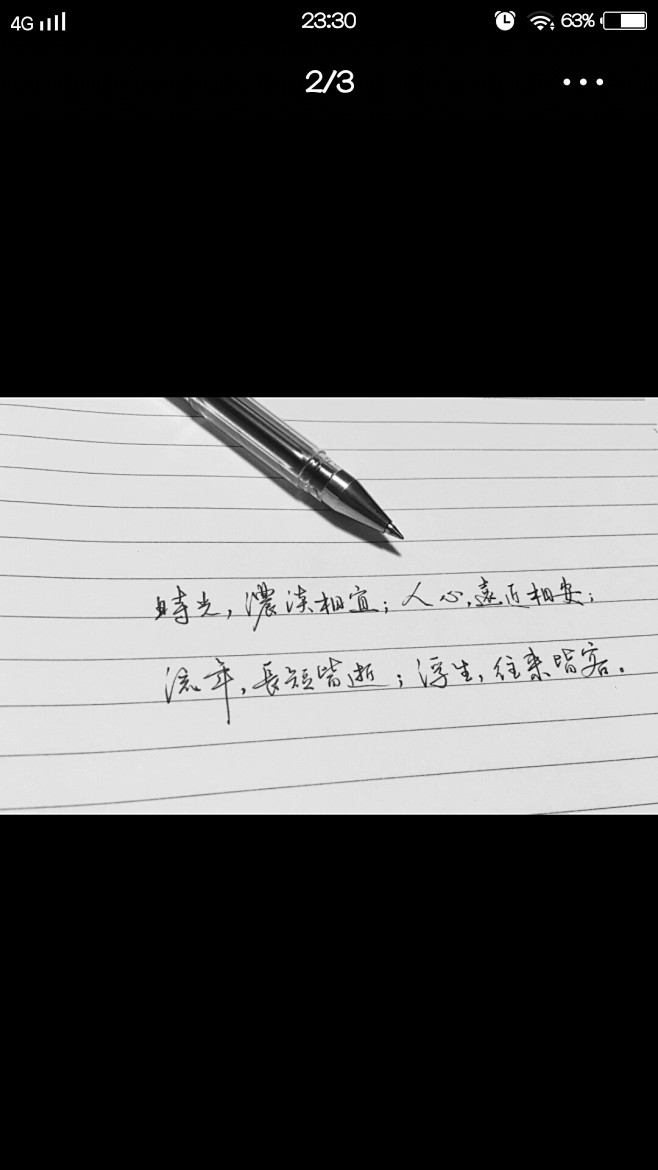 4G 23:30 63%
2/3
時光,濃淡相宜;人心,遠近相安;
流年,長短皆逝;浮生,往來皆客。